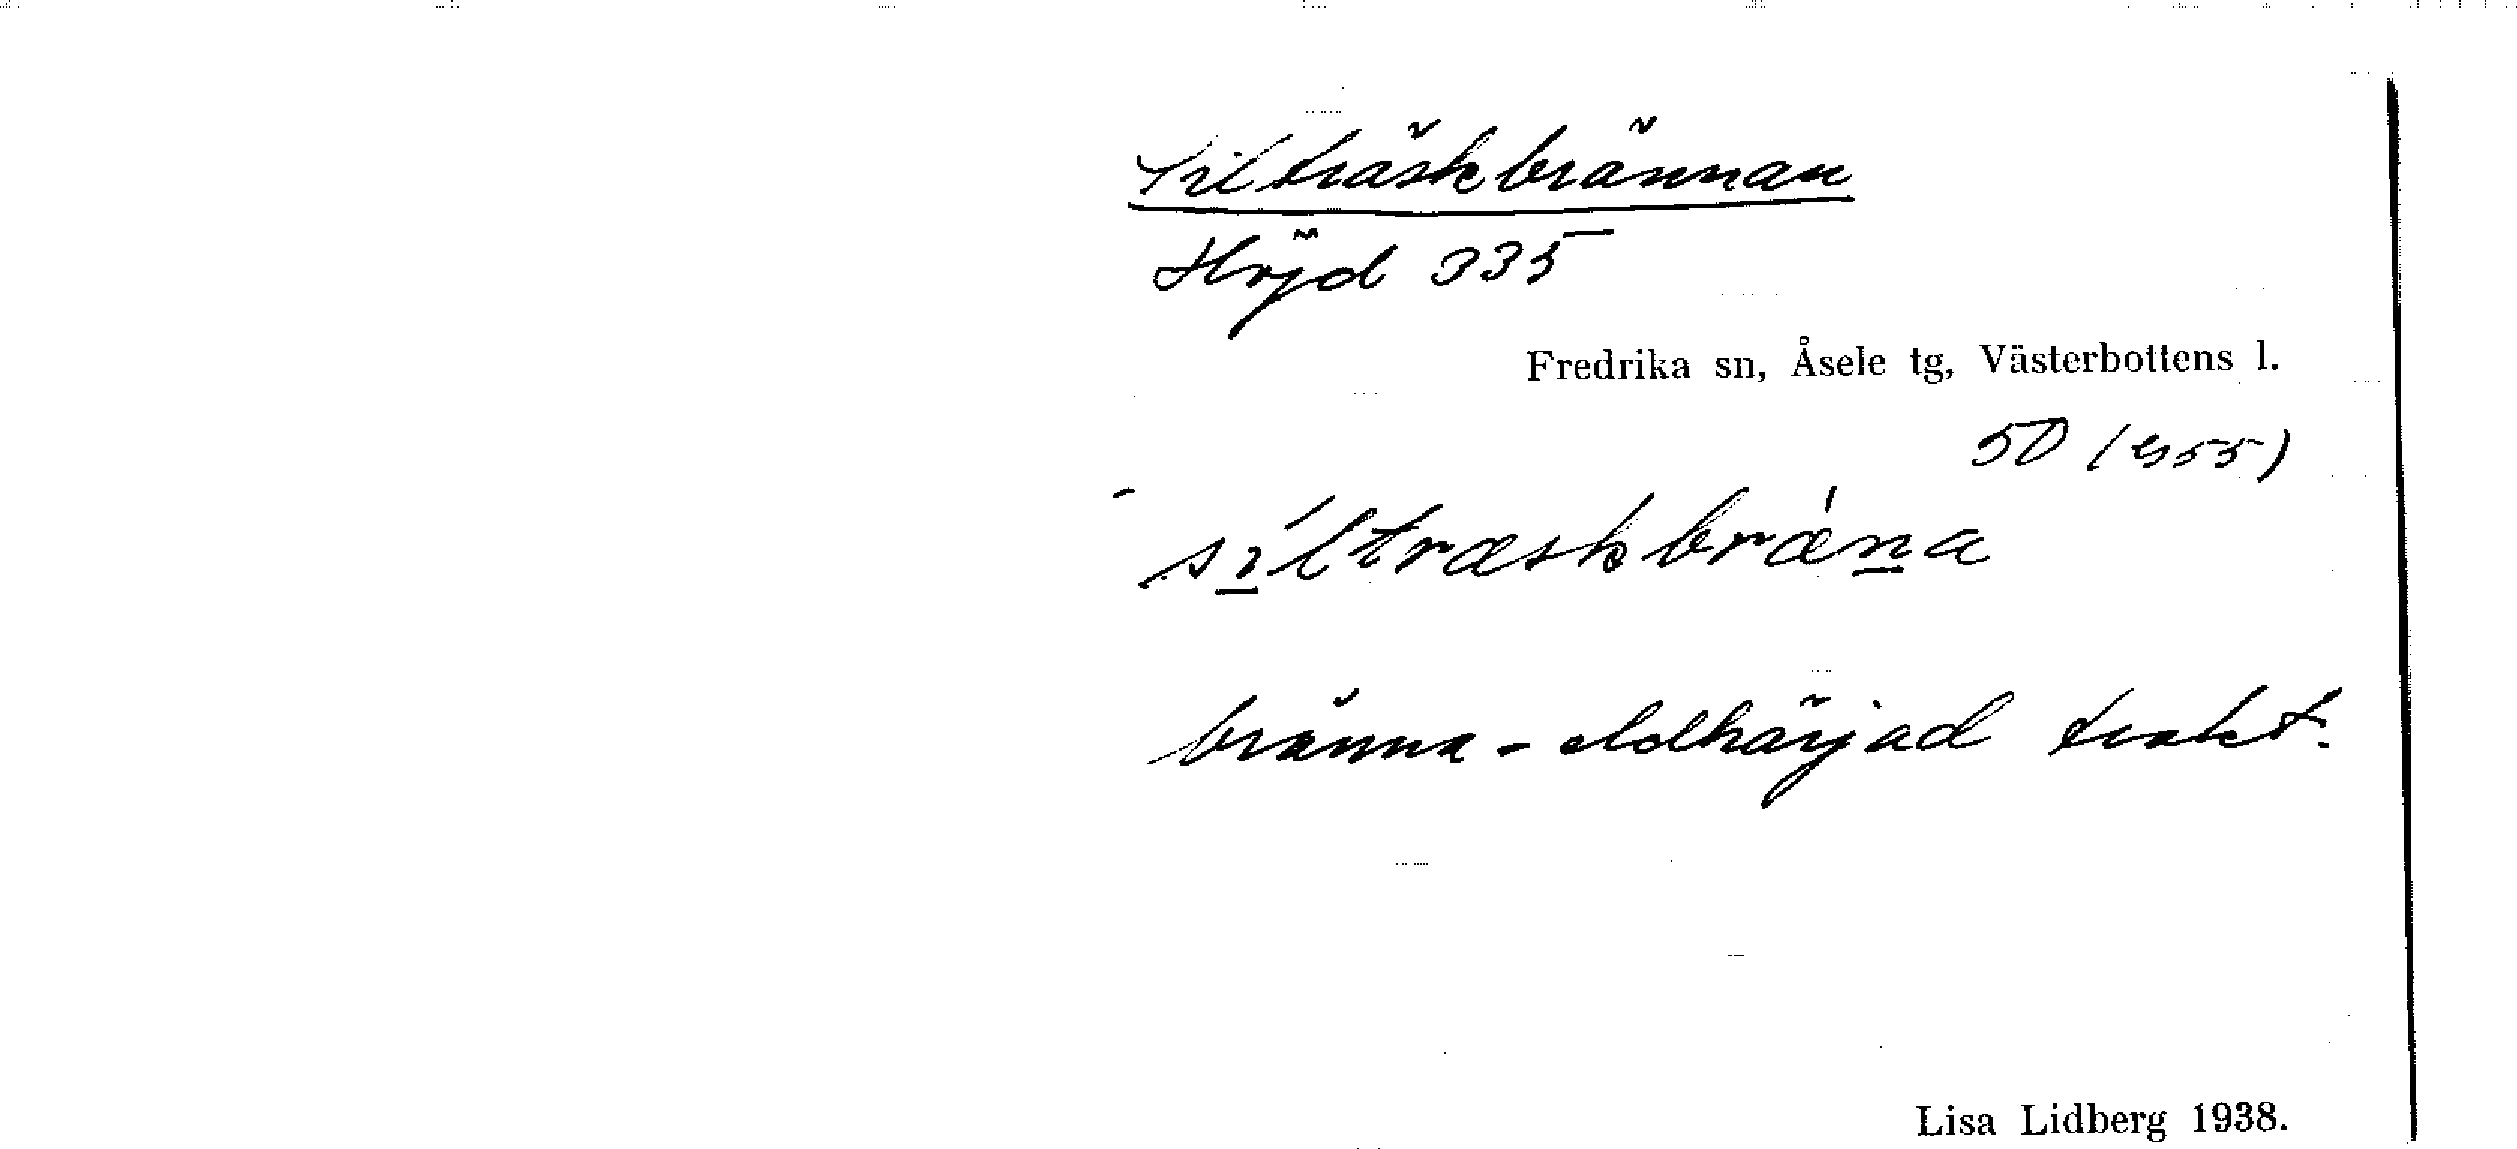 Silträskbrännan
Höjd 335
Fredrika sn, Åsele tg, Västerbottens l.
50 (955)
sı̲́ltræskbrǽn̲a
bränna - eldhärjad trakt.
Lisa Lidberg 1938.